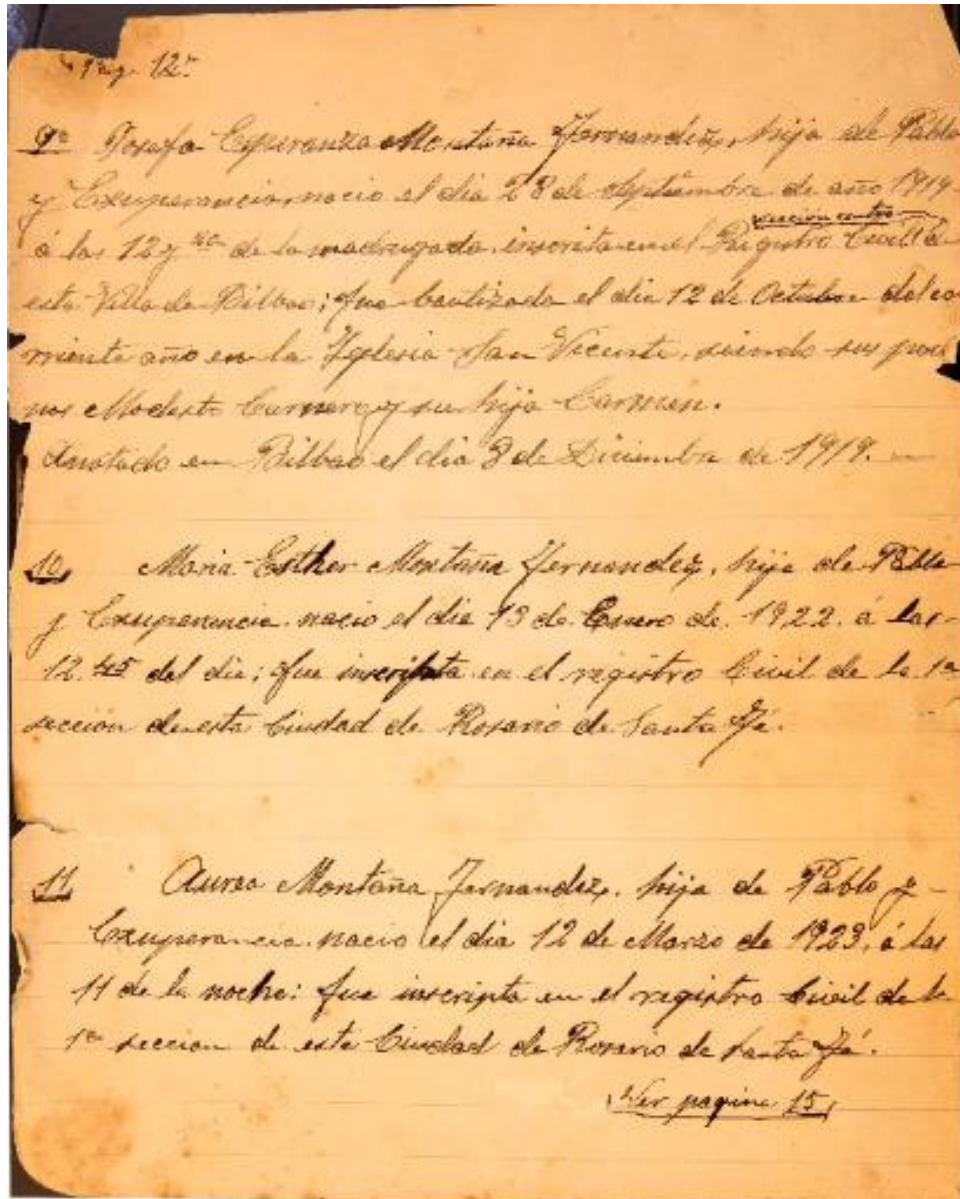 Pag. 12ª
9ª Josefa Esperanza Montaña Fernandez, hija de Pablo
y Exuperancia nacio el dia 28 de septiembre de año 1919
sección centro
á las 12 y de la madrugada inscrita en el Registro Civil de
esta Villa de Bilbao; fue bautizada el dia 12 de Octubre del co
rriente año en la Yglesia San Vicente, siendo sus padri
nos Modesto y su hija Carmen.
Anotado en Bilbao el dia 8 de Diciembre de 1919.
10, Maria Esther Montaña Fernandez, hija de Pablo
y Exuperancia nacio el dia 13 de Enero de 1922. á las
12.45 del dia; fue inscripta en el registro Civil de la 1ª
sección de esta Ciudad de Rosario de Santa Fé.
11 Aurea Montaña Fernandez, hija de Pablo y
Exuperancia nacio el dia 12 de Marzo de 1923, á las
11 de la noche: fue inscripta en el registro Civil de la
1ª seccion de esta Ciudad de Rosario de Santa Fé.
Ver pagina 15,